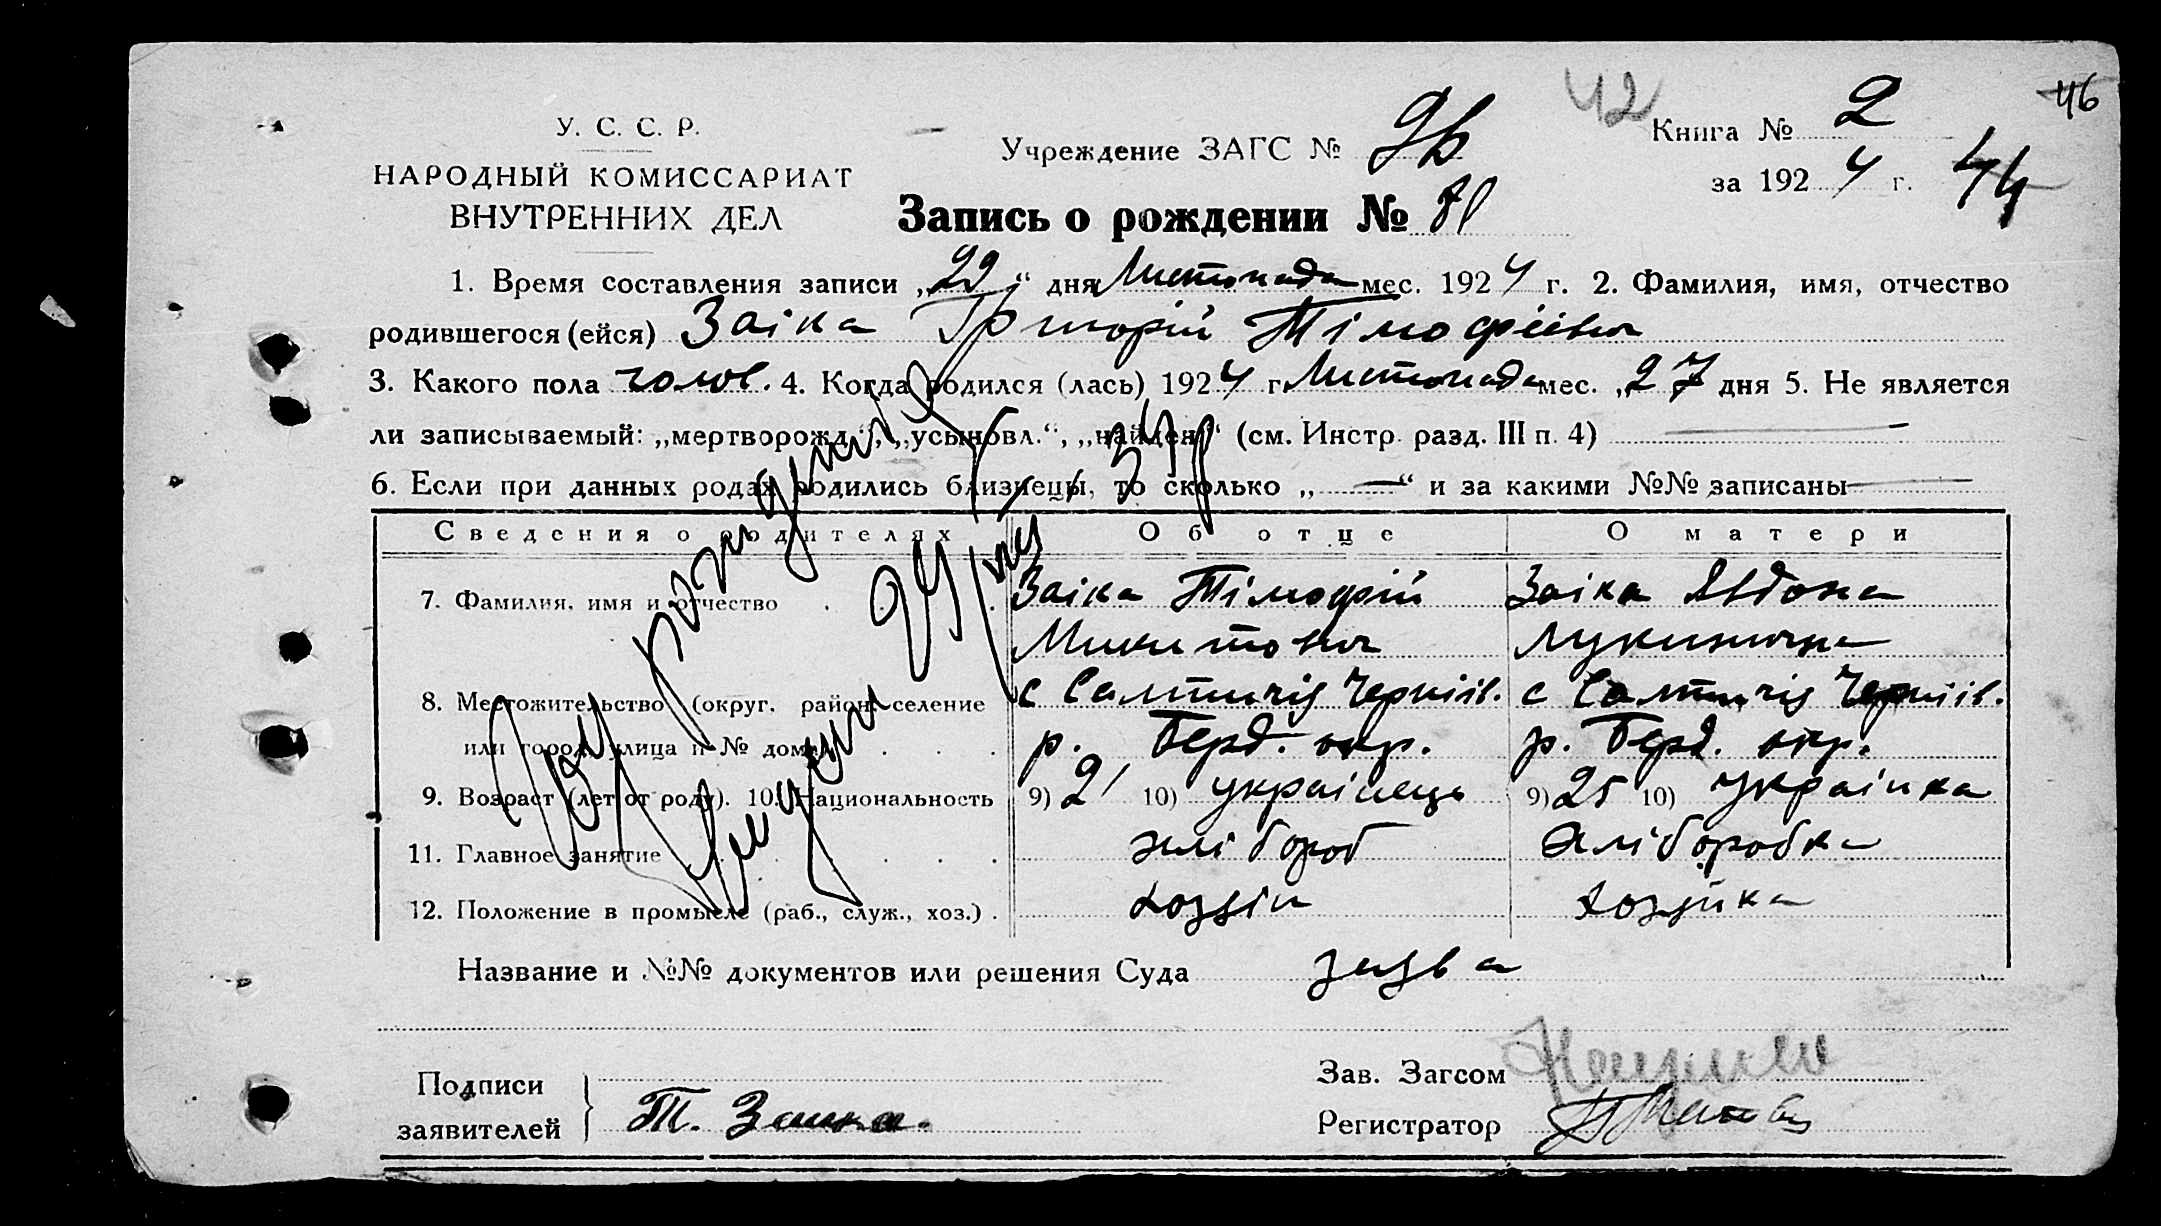 42
46
У. С. С. Р.
НАРОДНЫЙ КОМИССАРИАТ
ВНУТРЕННИХ ДЕЛ
Учреждение ЗАГС №
Книга № 2
за 1924 г. 44
Запись о рождении №
1. Время составления записи „29“ дня Листопада мес. 1924 г. 2. Фамилия, имя, отчество
родившегося (ейся) Заіка Григорій Тімофіівич
3. Какого пола чолов. 4. Когда родился (лась) 1924 г. Листопада мес. „27 дня 5. Не является
ли записываемый: „мертворожд.“, „усыновл.“, „найден“ (см. Инстр. разд. III п. 4) —
6. Если при данных родах родились близнецы, то сколько „—“ и за какими №№ записаны —
Сведения о родителях Об отце О матери
7. Фамилия, имя и отчество Заіка Тімофій Заіка Явдоха
Микитович Лукинична
8. Местожительство (округ, район, селение с Салтичія Черніів. с Салтичія Черніів.
или город, улица и № дома) р. Берд. окр. р. Берд. окр.
9. Возраст (лет от роду). 10. Национальность 9) 21 10) українець 9) 25 10) українка
11. Главное занятие хлібороб хліборобка
12. Положение в промысле (раб., служ., хоз.) . хозяін хозяйка
Название и №№ документов или решения Суда заява
Подписи
заявителей
Т. Заика.
Зав. Загсом
Регистратор